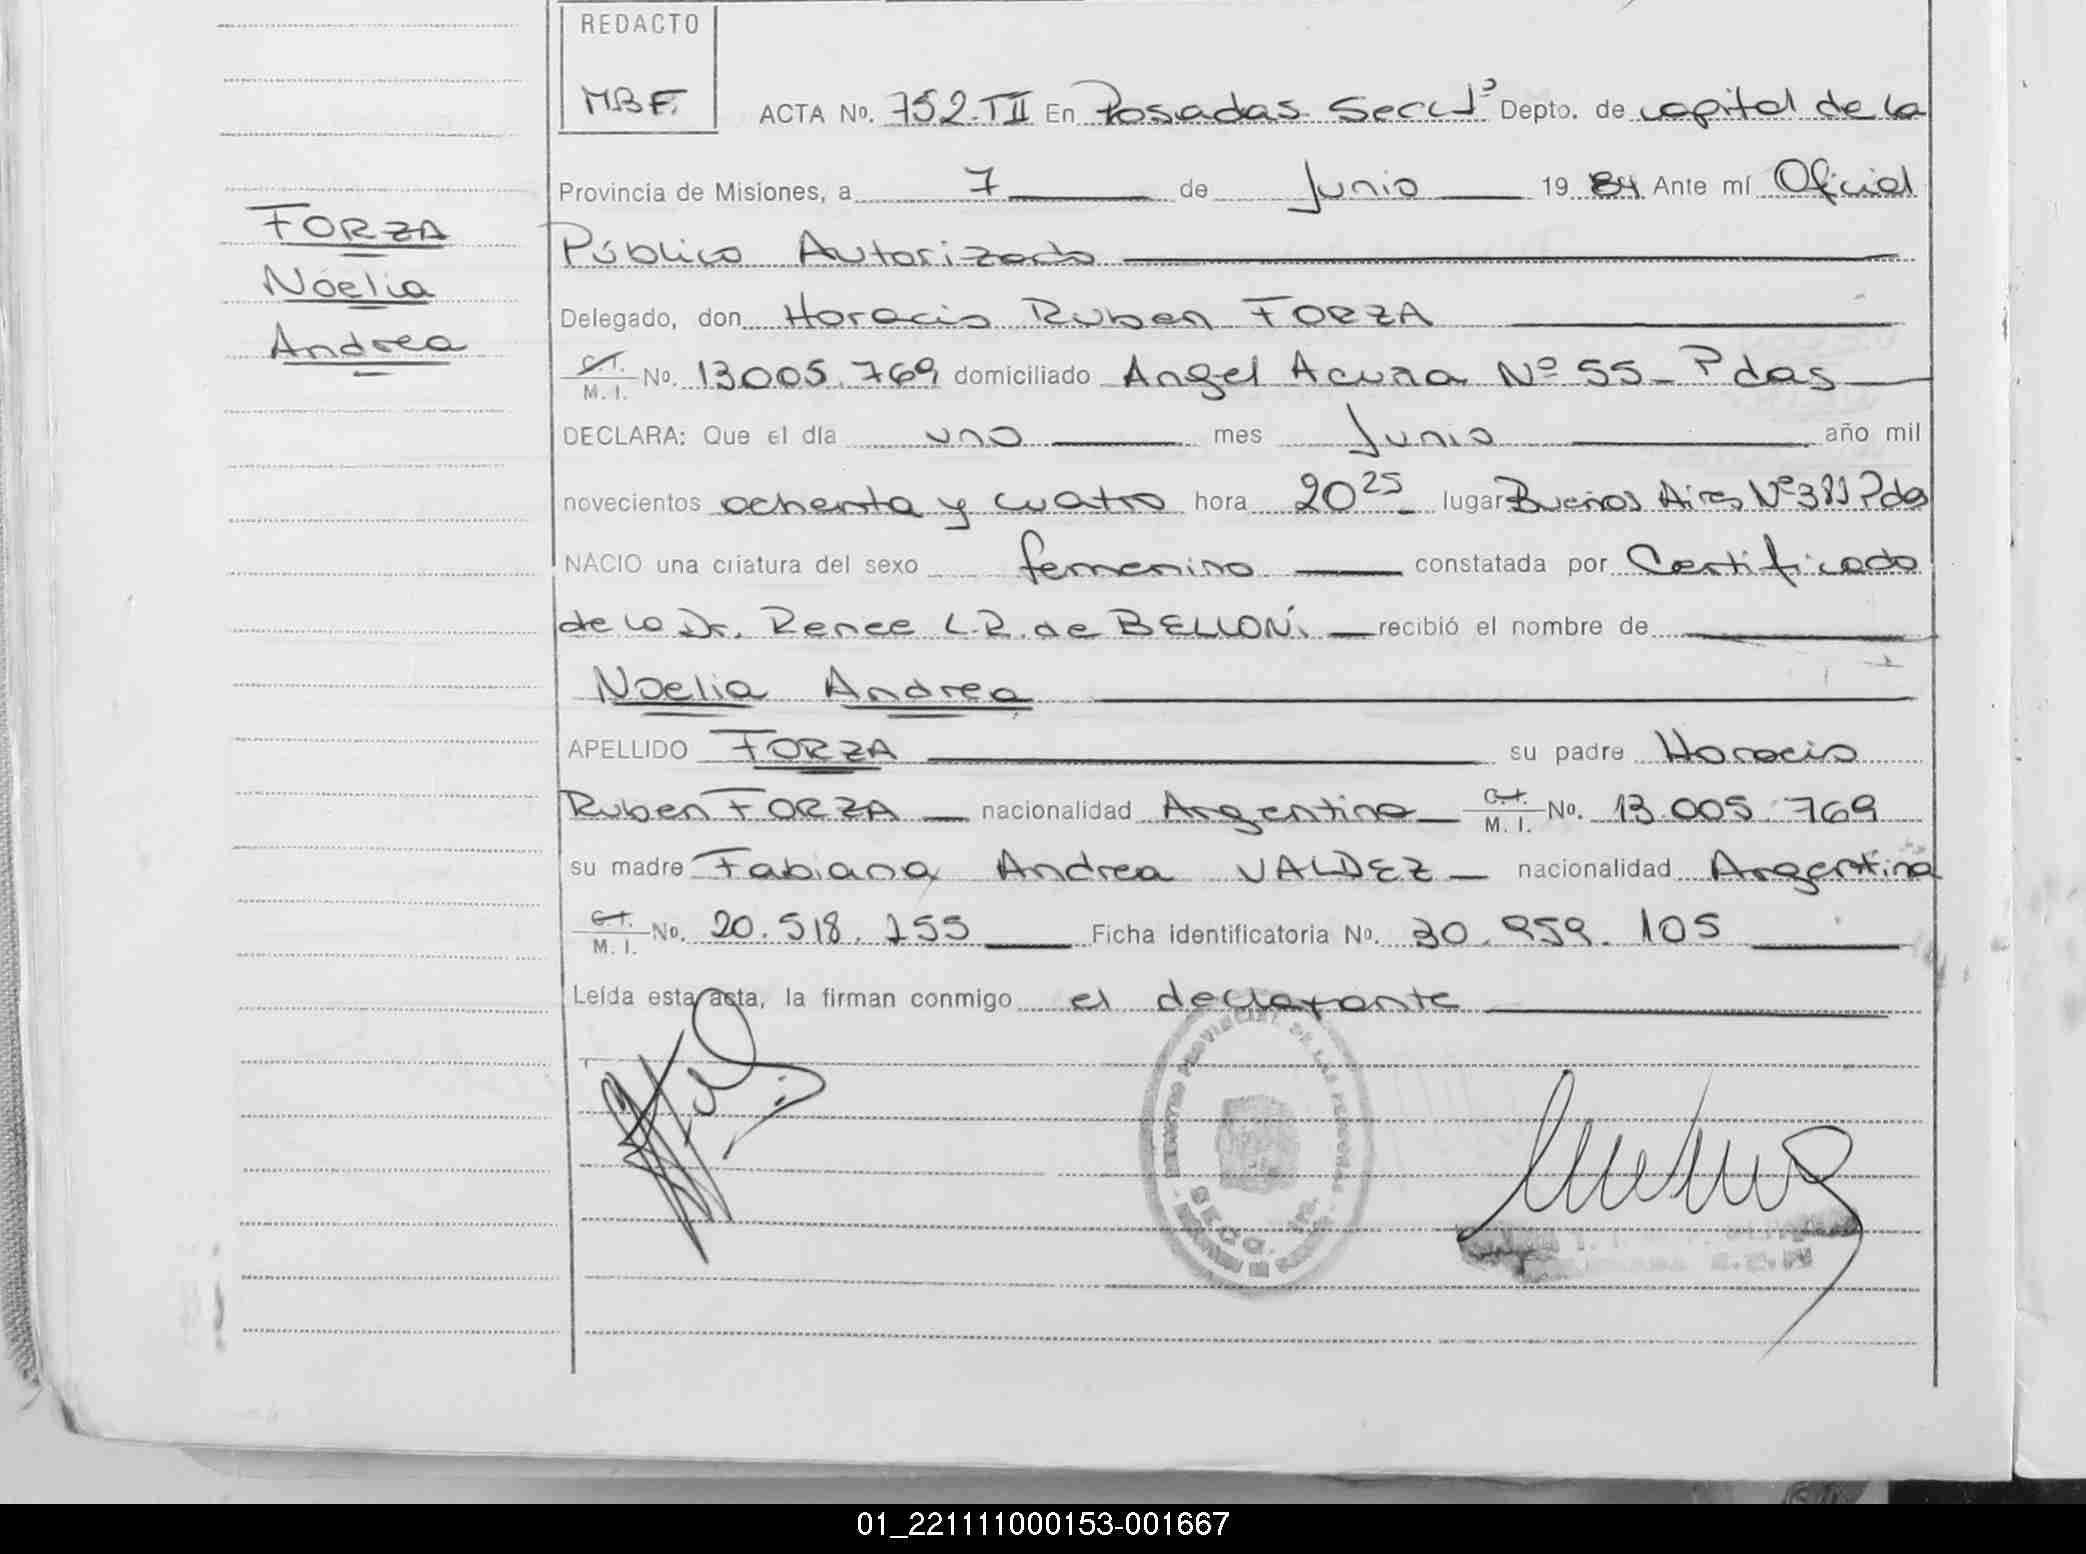 REDACTO
MBF.
ACTA No. 752. TII En Posadas Secc 1ª Depto. de capital de la
Provincia de Misiones, a 7 de Junio 19 84 Ante mí Oficial
Público Autorizado
FORZA
Noelia
Andrea
Delegado, don Horacio Ruben FORZA
C.I. M. I. No. 13005.769 domiciliado Angel Acuña Nº 55 - Pdas
DECLARA: Que el día uno mes Junio año mil
novecientos ochenta y cuatro hora 20 25 lugar Buenos Aires Nº Pdas
NACIO una criatura del sexo femenino constatada por Certificado
de la Dr. Renee L.R. de BELLONI recibió el nombre de
Noelia Andrea
APELLIDO FORZA su padre Horacio
Ruben FORZA nacionalidad Argentina C.I. M. I. No. 13.005.769
su madre Fabiana Andrea VALDEZ nacionalidad Argentina
C.I. M. I. No. 20.518.155 Ficha identificatoria No. 30.959.105
Leída esta acta, la firman conmigo el declarante
REGISTRO PROVINCIAL DE LAS PERSONAS
SECC. 1ra.
01_221111000153-001667